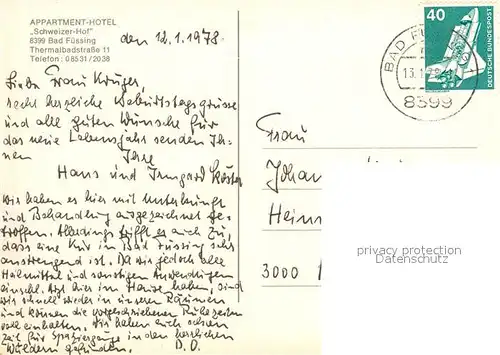 APPARTMENT-HOTEL
„Schweizer-Hof"
8399 Bad Füssing
Thermalbadstraße 11
Telefon: 08531/2038
den 12.1.1978
Liebe Frau Krüger,
recht herzliche Geburtstagsgrüsse
und alle guten Wünsche für
das neue Lebensjahr senden Ih-
nen Ihre
Hans und Irmgard Köster
Wir haben es hier mit Unterkunft
und Behandlung ausgezeichnet ge-
troffen. Allerdings trifft es auch zu,
dass eine Kur in Bad Füssing sehr
anstrengend ist. Da wir jedoch alle
Heilmittel und sonstigen Anwendungen
einschl. Arzt hier im Hause haben, sind
wir schnell wieder in unseren Räumen
und können die vorgeschriebenen Ruhezeiten
voll einhalten. Wir haben auch schon
Zeit für Spaziergänge in den herrlichen
Wäldern gefunden. D.O.
40
DEUTSCHE BUNDESPOST
BAD FÜ
13.1.78
8399
Frau
Johan
Hein
3000
privacy protection
Datenschutz